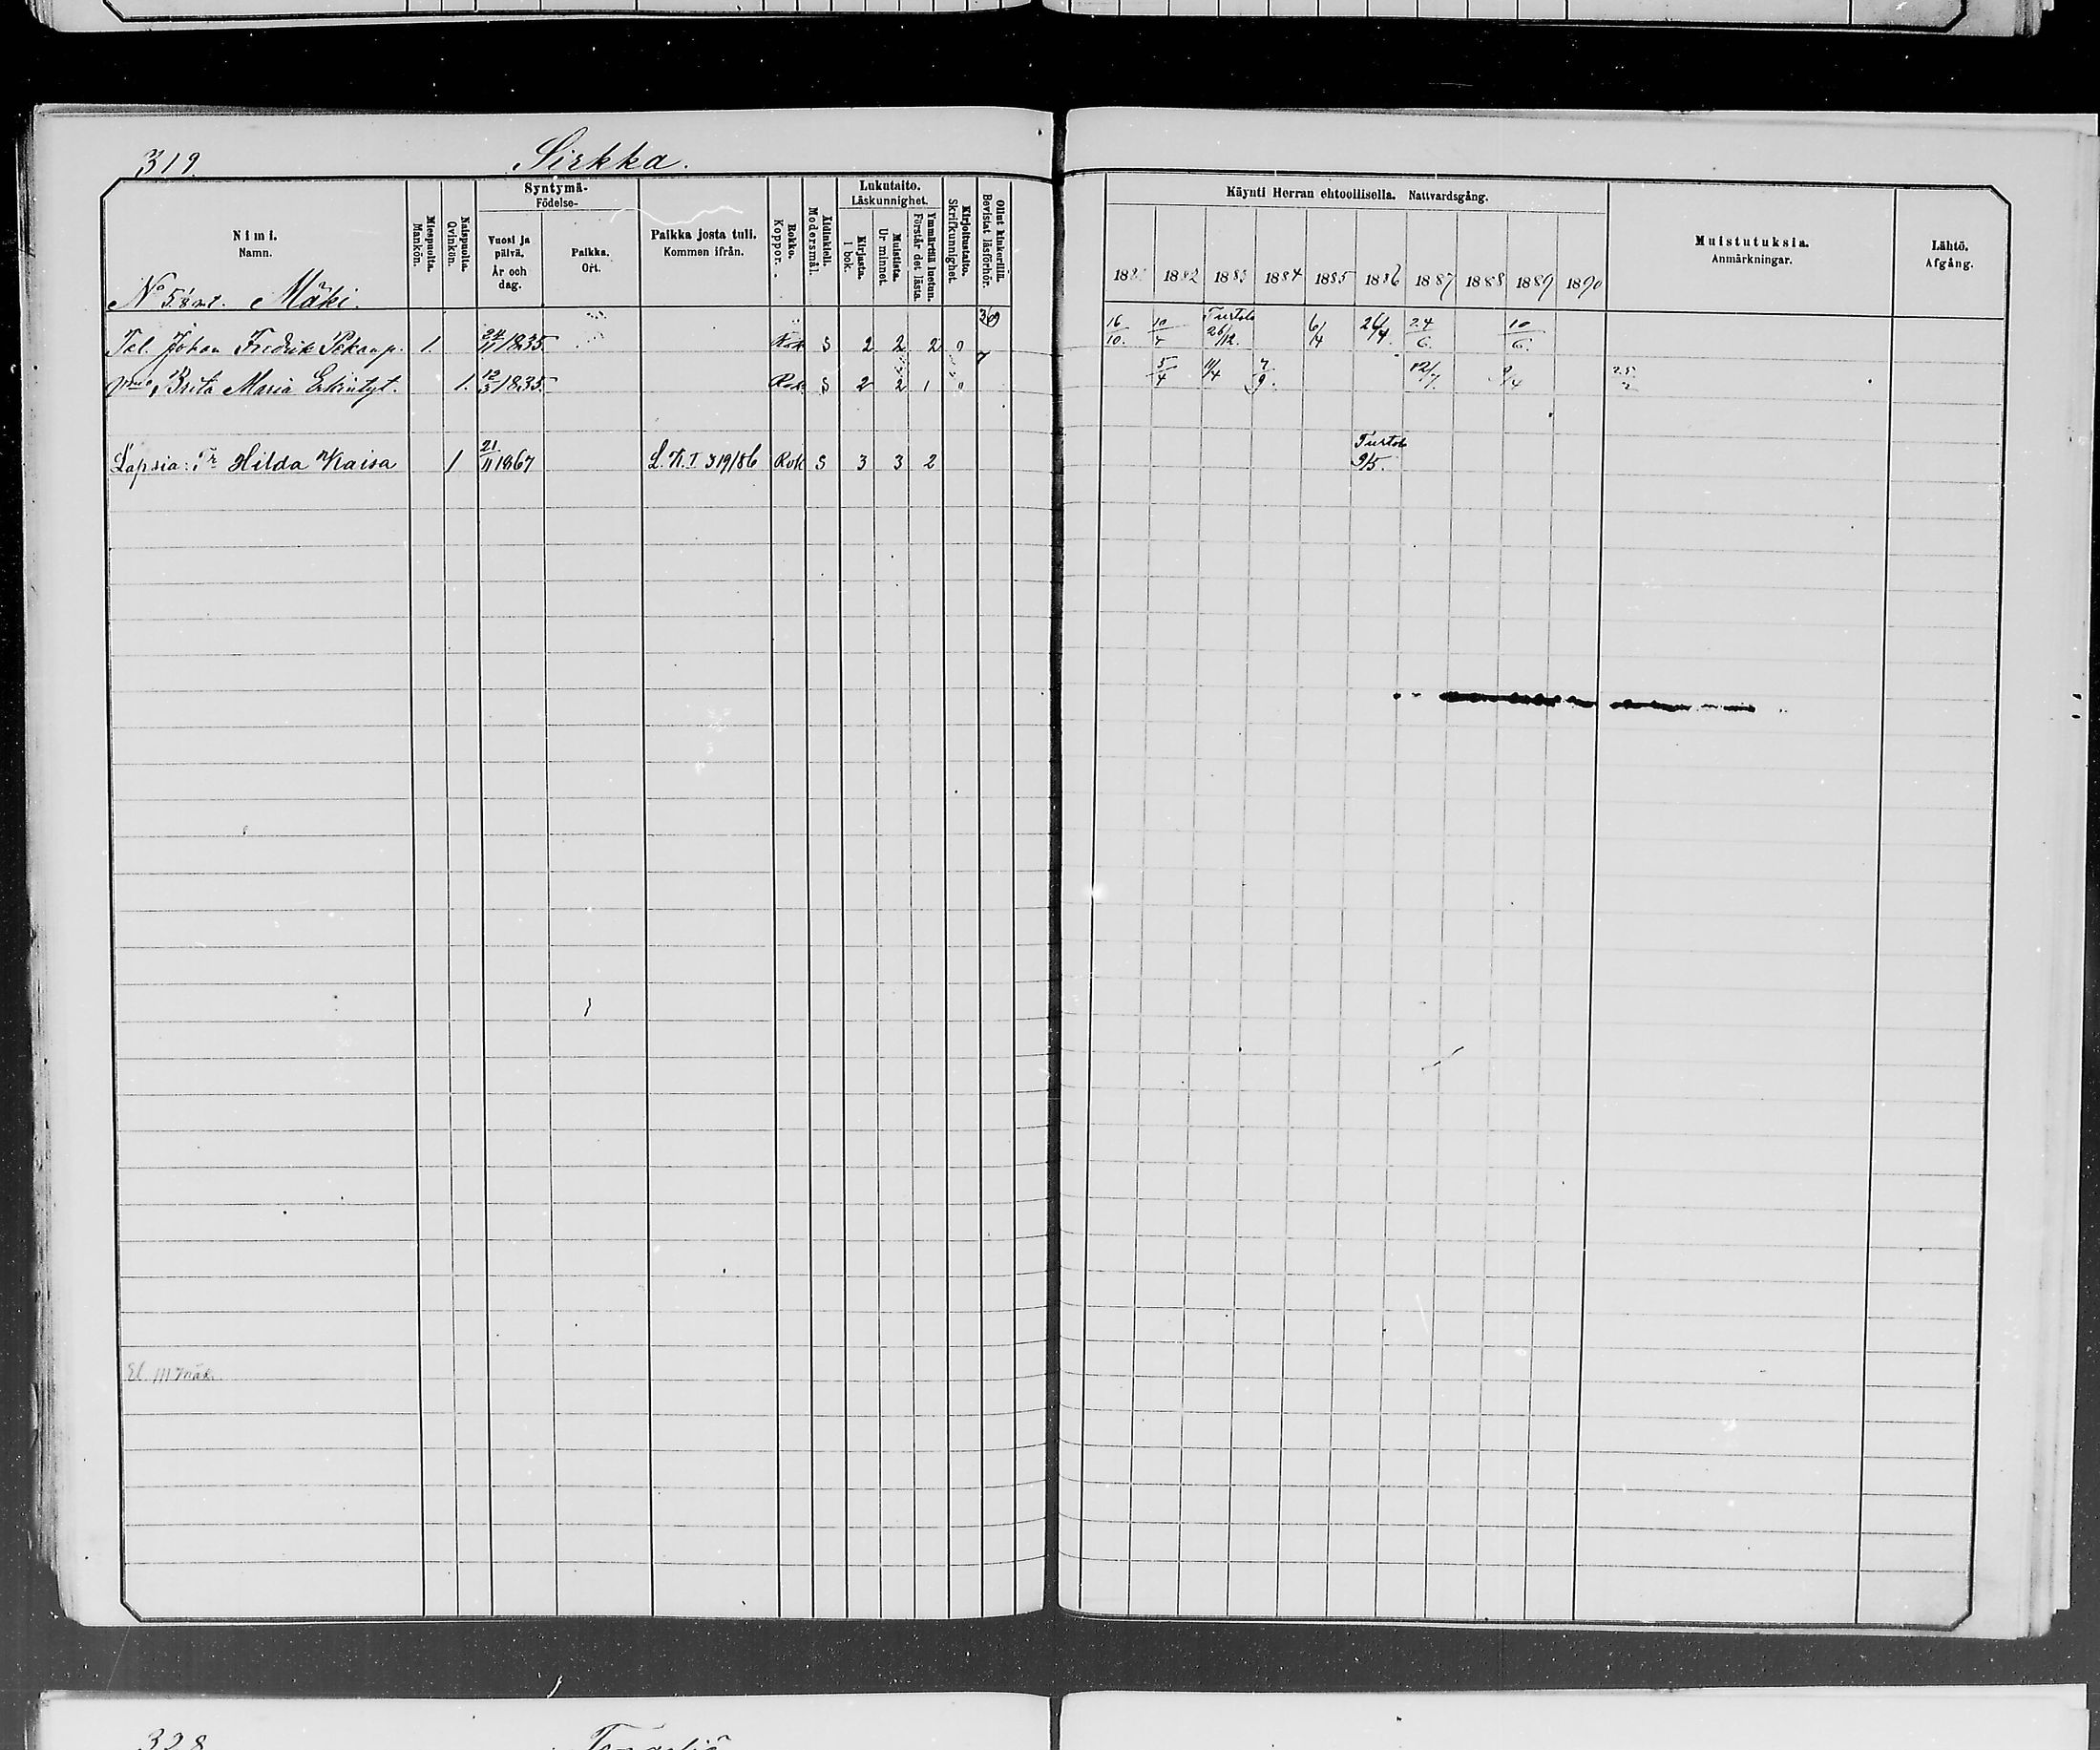 319. Sirkka.
Nimi. Namn.
Miespuolta. Mankön.
Naispuolta. Qvinkön.
Syntymä- Födelse-
Vuosi ja päivä. År och dag.
Paikka. Ort.
Paikka josta tuli. Kommen ifrån.
Rokko. Koppor.
Äidinkieli. Modersmål.
Lukutaito. Läskunnighet.
Kirjasta. I bok.
Muistista. Ur minnet.
Ymmärtää luetun. Förstår det lästa.
Kirjoitustaito. Skrifkunnighet.
Ollut kinkerillä. Bevistat läsförhör.
Käynti Herran ehtoollisella. Nattvardsgång.
188 1882 1883 1884 1885 1886 1887 1888 1889 1890
Muistutuksia. Anmärkningar.
Lähtö. Afgång.
Mäki.
Tal. Johan Fredrik Pekanp. 1. 24/11 1835 Rok S 2 2 2 16/10. 10/4 26/12. 6/4 26/4. 24/6. 10/6.
Brita Maria 1. 12/3 1835 Rok S 2 2 1 5/4 11/4 7/9. 12/7.
Lapsia: Tr Hilda Kaisa 1 21/11 1867 L.K.I 319/86 Rok S 3 3 2 9/5.
328